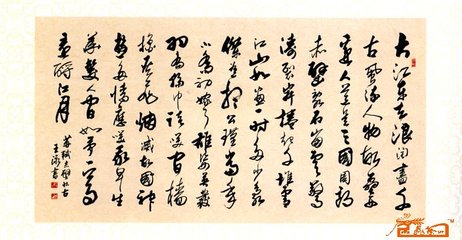 大江东去浪淘尽千
古风流人物故垒西
边人道是三国周郎
赤壁乱石崩云惊
涛裂岸捲起千堆雪
江山如画一时多少豪
杰遥想公瑾当年
小乔初嫁了雄姿英发
羽扇纶巾谈笑间樯
橹灰飞烟灭故国神
游多情应笑我早生
华发人间如梦一尊
还酹江月
苏轼赤壁怀古